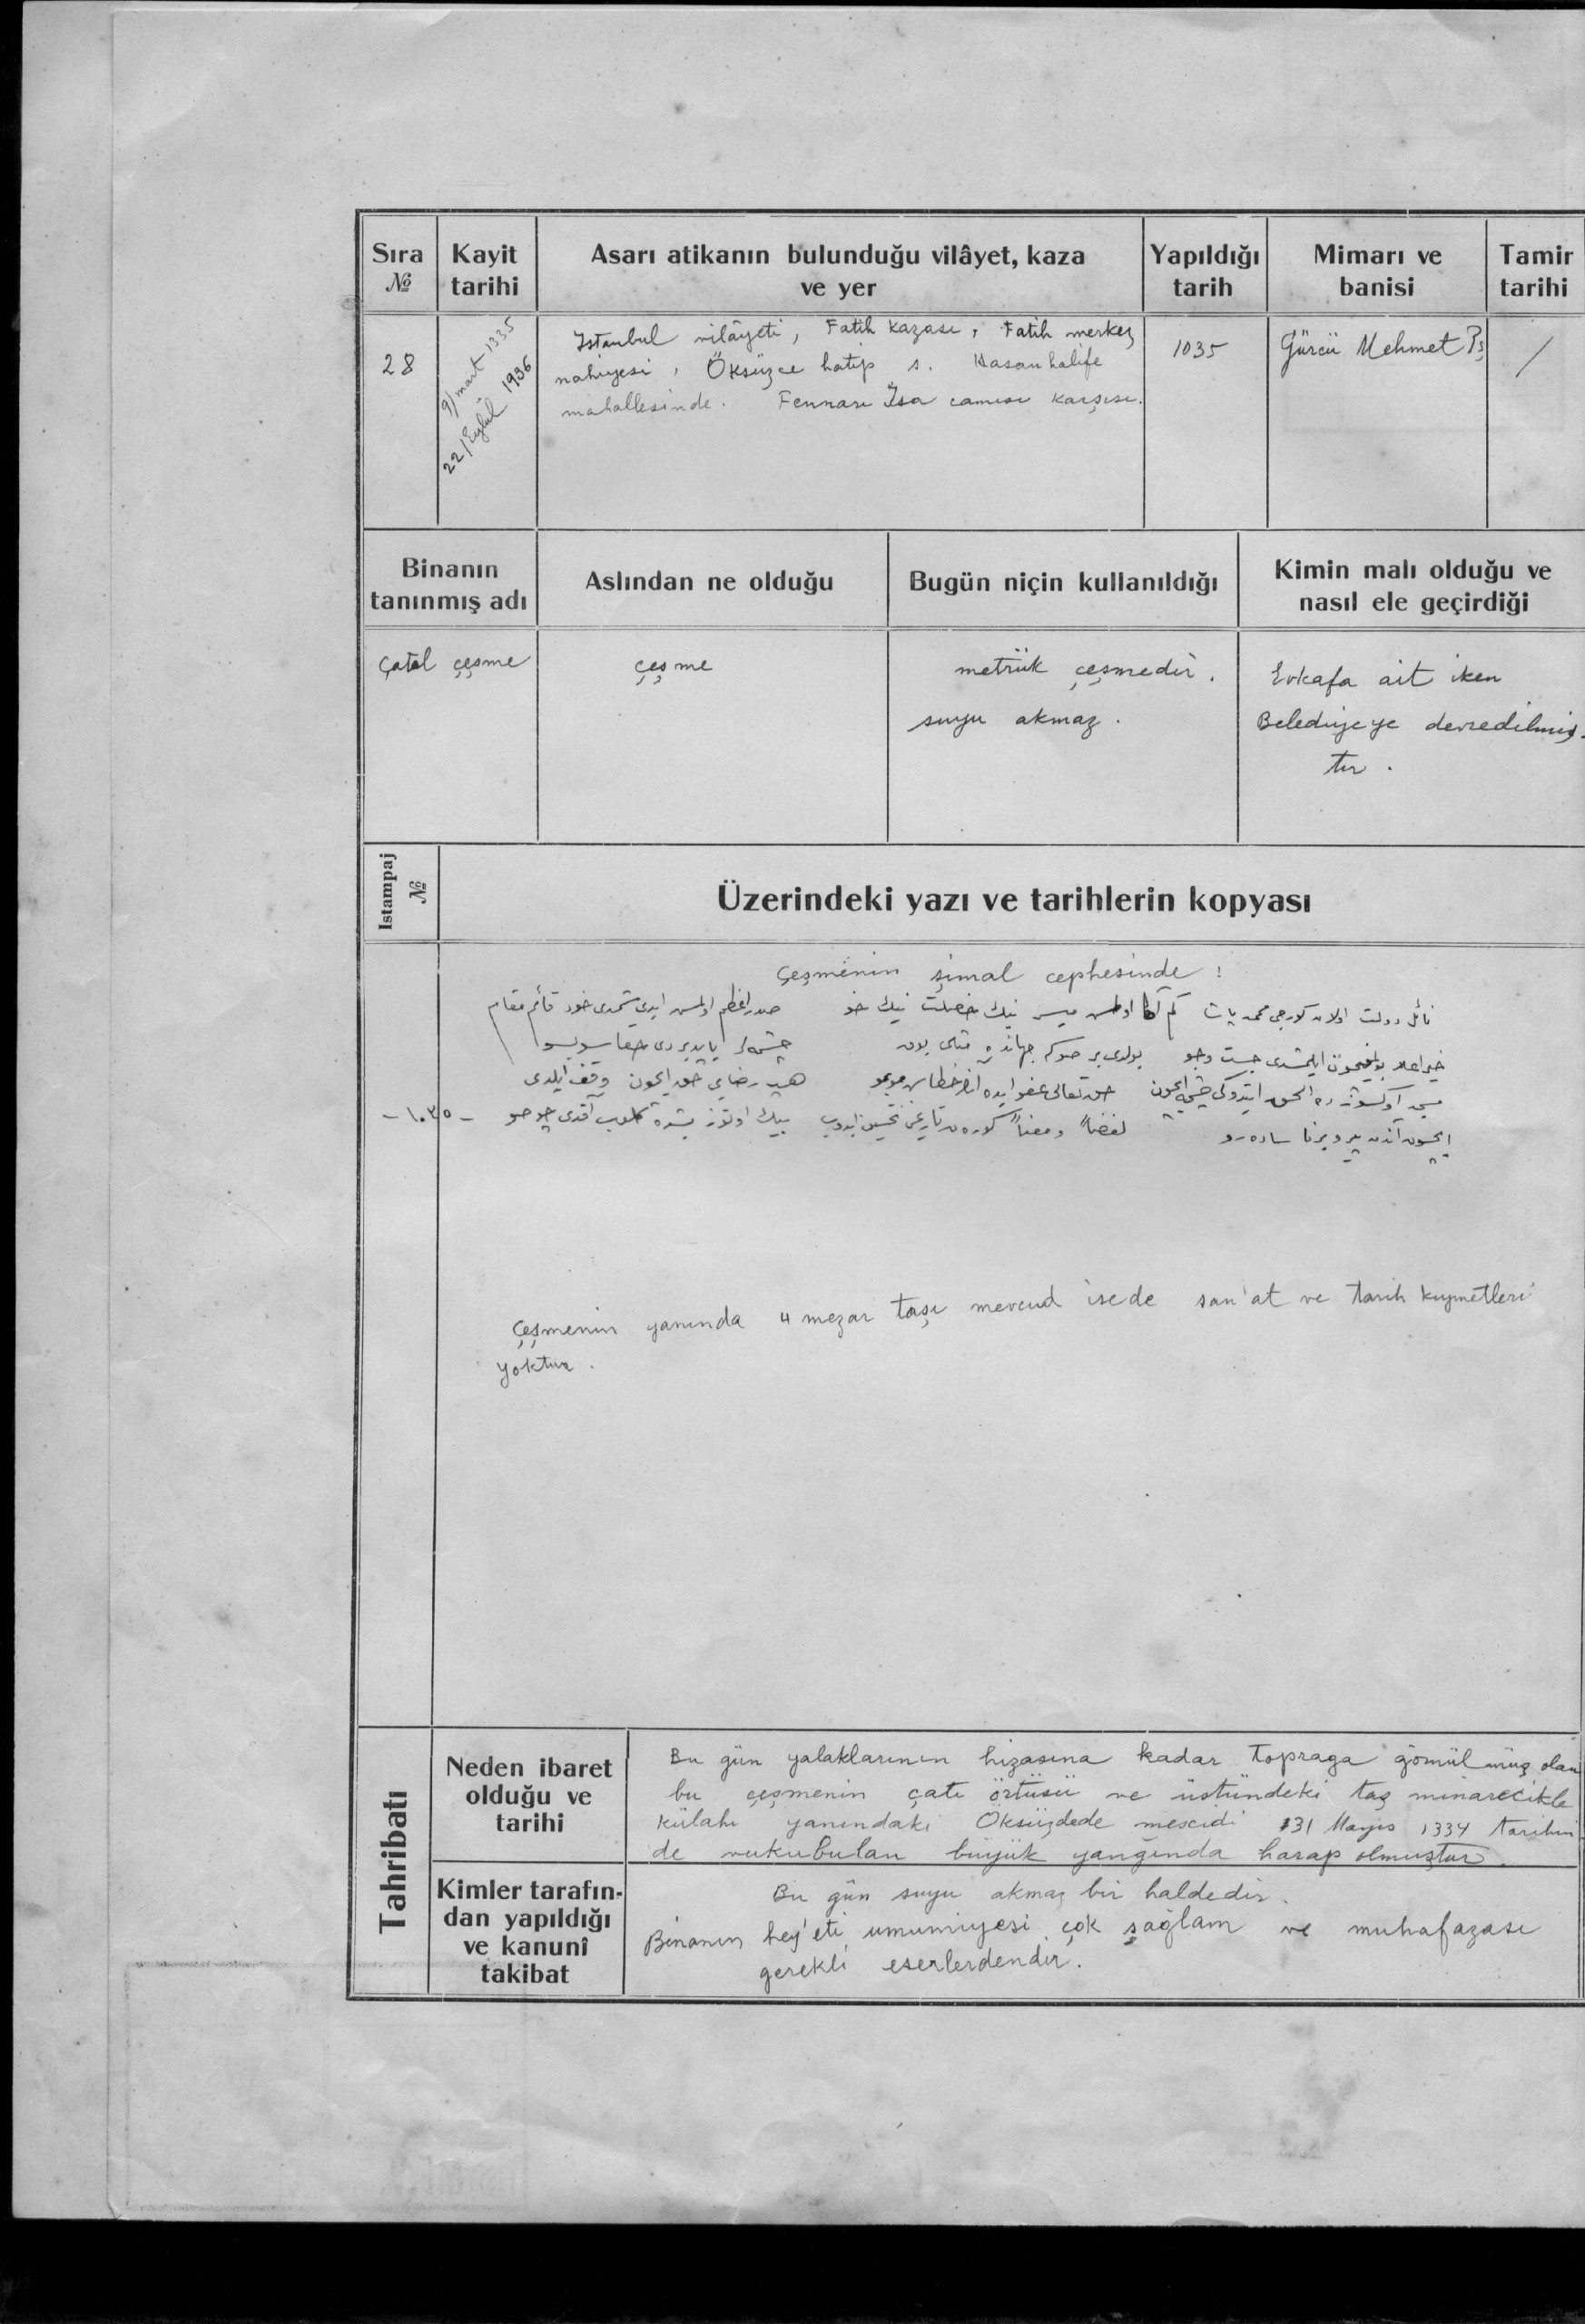 Sıra № Kayit tarihi Asarı atikanın bulunduğu vilâyet, kaza ve yer Yapıldığı tarih Mimarı ve banisi Tamir tarihi
28
9/mart 1335
22/Eylül 1936
Istanbul vilâyeti, Fatih kazası, Fatih merkez
nahiyesi, Öksüzce hatip s. Hasan halife
mahallesinde. Fennarı İsa camisi karşısı.
1035
Gürcü Mehmet Pş
/
Binanın tanınmış adı Aslından ne olduğu Bugün niçin kullanıldığı Kimin malı olduğu ve nasıl ele geçirdiği
Çatal çeşme
çeşme
metrük çeşmedir.
suyu akmaz.
Evkafa ait iken
Belediyeye devredilmiş-
tir.
Istampaj №
Üzerindeki yazı ve tarihlerin kopyası
Çeşmenin şimal cephesinde :
نائل دولت اولان كورجی محمد پاشا كم آكا اولمش ميسر نيك خصلت نيك خو صدر اعظم اولمش ايدی شمدی خود قائم مقام
بولدی بر صوكم جهانده مثلی يوق چشمه لر ياپديردی
حق تعالی عفو ايده هپ رضای حق ايچون وقف ايلدی
لفظاً و معناً تاريخن تحسين ايدوب بيك اوتوز بشده كلوب آقدی
- ١٠٣٥ -
Çeşmenin yanında 4 mezar taşı mevcud isede san'at ve tarih kıymetleri
yoktur.
Tahribatı
Neden ibaret olduğu ve tarihi
Bu gün yalaklarının hizasına kadar topraga gömülmüş olan
bu çeşmenin çatı örtüsü ve üstündeki taş minarecikle
külahı yanındaki Öksüzdede mescidi 31 Mayıs 1334 tarihin
de vukubulan büyük yangında harap olmuştur.
Kimler tarafın-
dan yapıldığı
ve kanunî
takibat
Bu gün suyu akmaz bir haldedir.
Binanın hey'eti umumiyesi çok sağlam ve muhafazası
gerekli eserlerdendir.